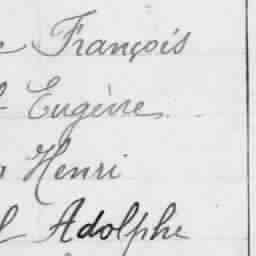 François
Eugène
Henri
Adolphe